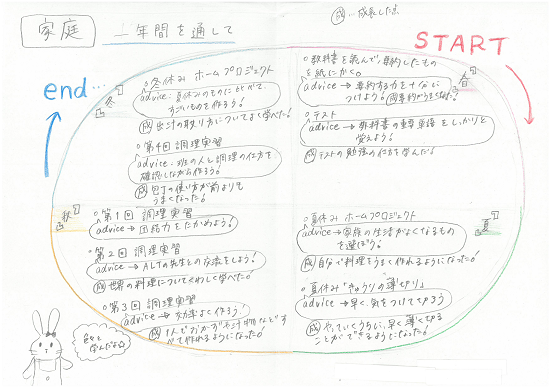 家庭 二年間を通して
成 …成長した!
START
春
○教科書を読んで,要約したもの
を紙にかく。
advice → 要約する力を十分に
つけよう!
成
○テスト
advice → 教科書の重要単語をしっかりと
覚えよう!
成 テストの勉強の仕方を学んだ!
夏
○夏休み ホームプロジェクト
advice → 家族の生活がよくなるもの
を選ぼう!
成 自分で料理をうまく作れるようになった!
○夏休み「きゅうりの薄切り」
advice → 早く,気をつけてやろう
成 やっていくうちに,早く薄く切る
ことができるようになった!
秋
○第1回 調理実習
advice → 団結力をたかめよう!
○第2回 調理実習
advice → ALTの先生との交流をしよう!
成 世界の料理についてくわしく学べた!
○第3回 調理実習
advice → 効率よく作ろう!
成 1人でおかずや汁物などす
べて作れるようになった!
冬
○第4回 調理実習
advice:班の人と調理の仕方を
確認しながら作ろう!
成 包丁の使い方が前よりも
うまくなった!
○冬休み ホームプロジェクト
advice:夏休みのものにくらべて,
すごいものを作ろう!
成 出汁の取り方についてよく学べた!
end…
色々と
学んだよ☆